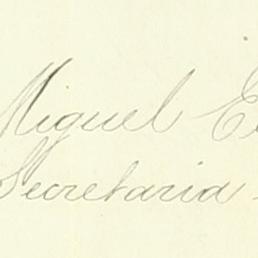 Miguel E
Secretaria